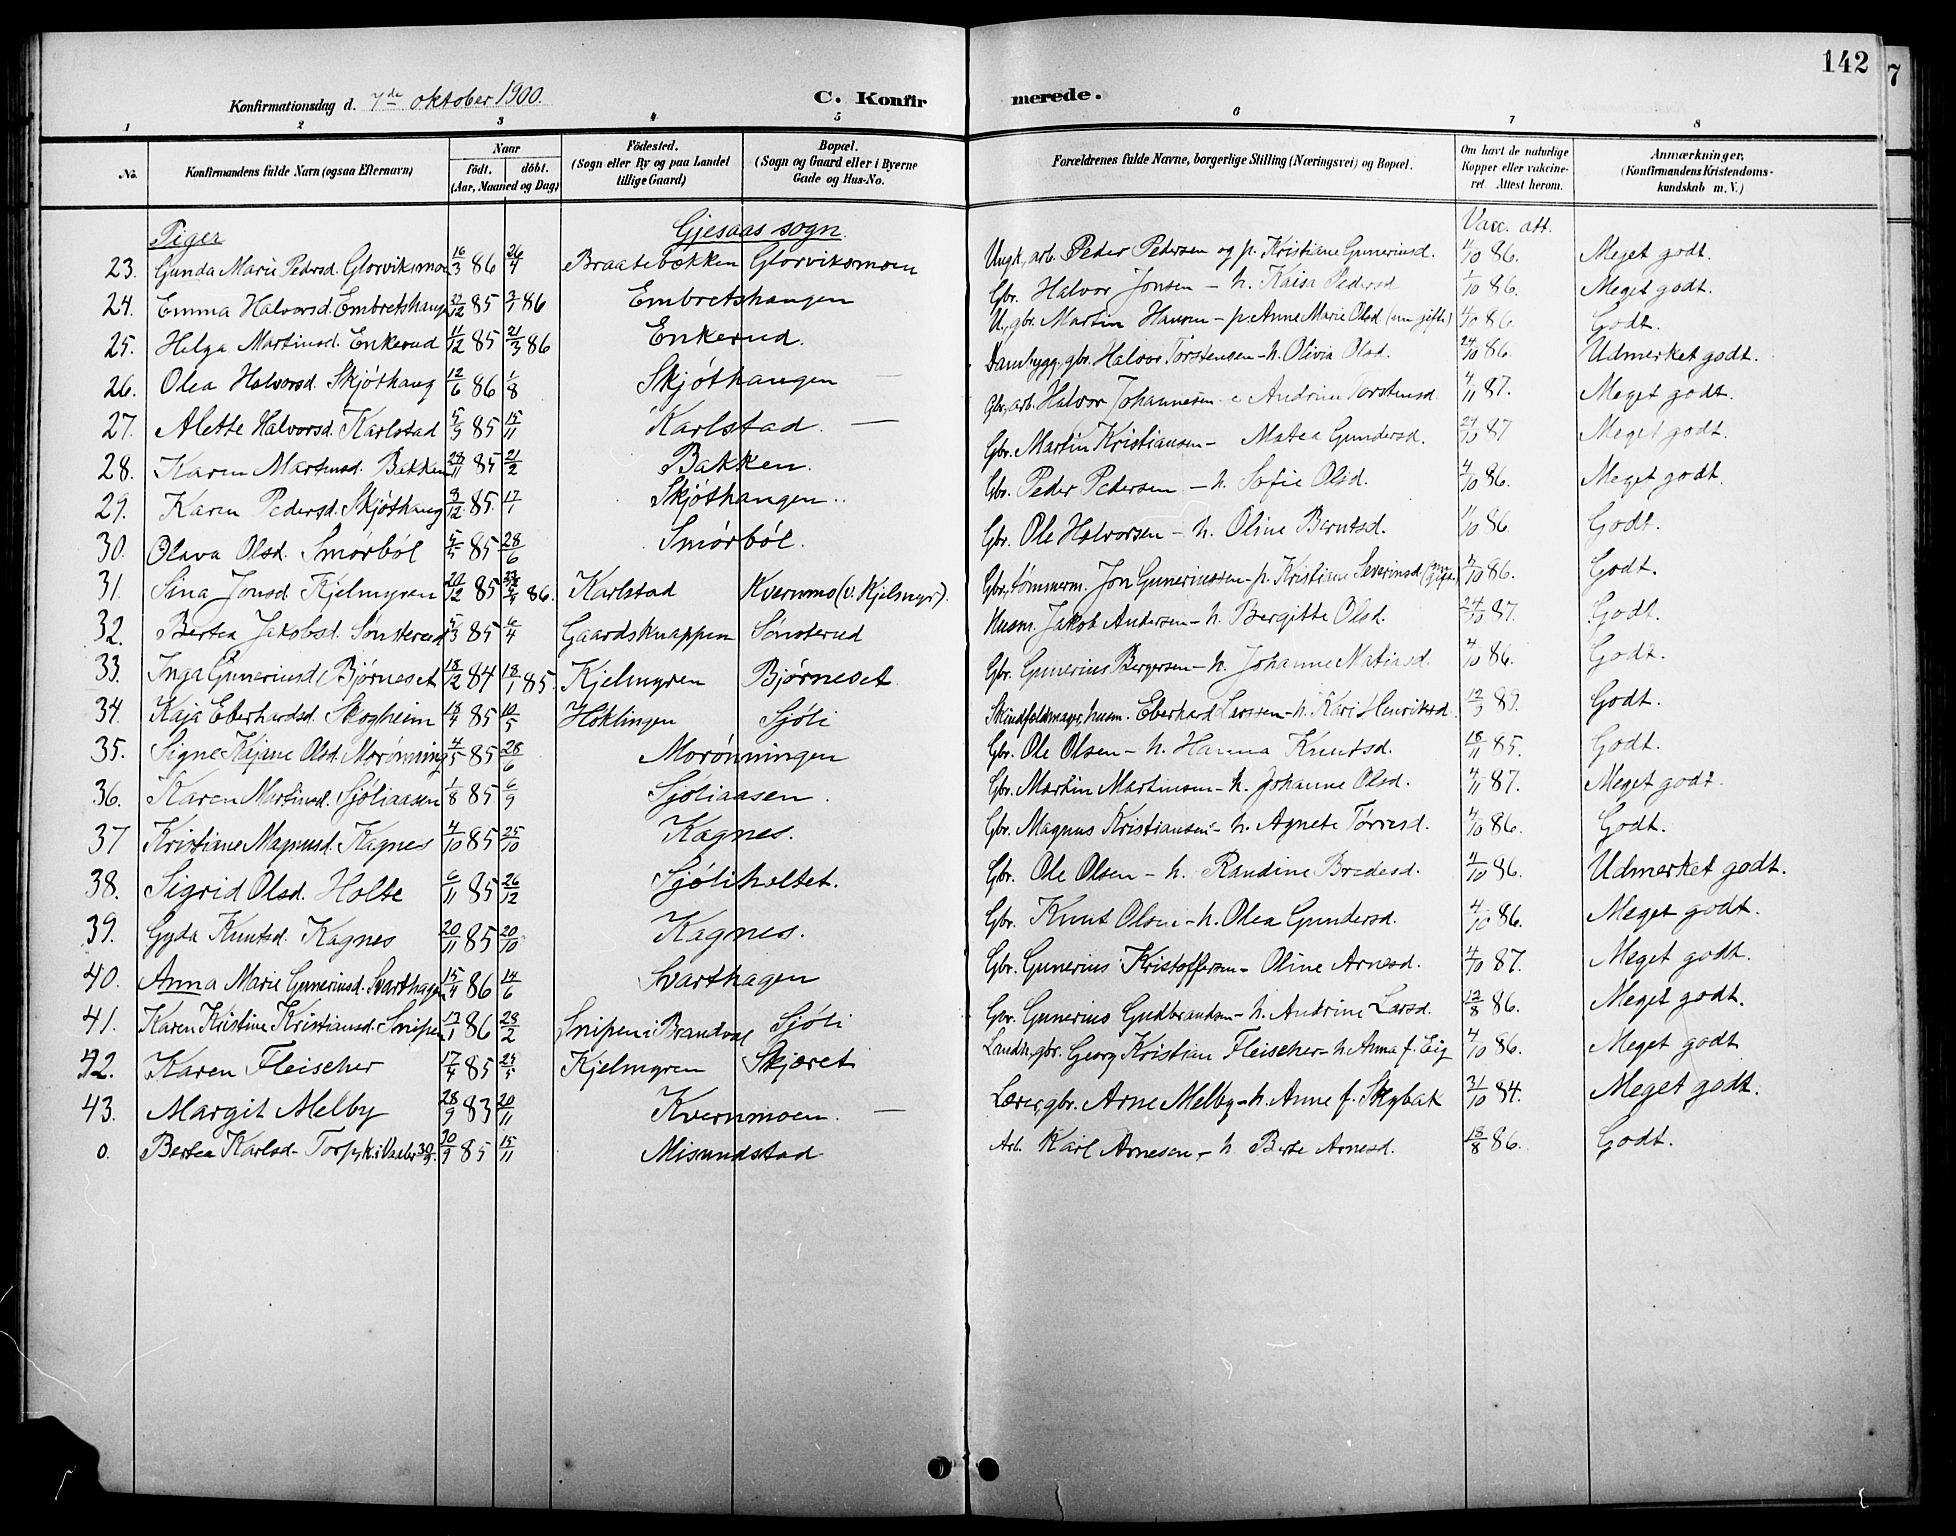 142
7
Konfirmationsdag d. 7de oktober 1900.
C. Konfirmerede.
1 2 3 4 5 6 7 8
No. Konfirmandens fulde Navn (ogsaa Efternavn) Naar født. døbt. (Aar, Maaned og Dag) Födested. (Sogn eller By og paa Landet tillige Gaard) Bopæl. (Sogn og Gaard eller i Byerne Gade og Hus-No. Forældrenes fulde Navne, borgerlige Stilling (Næringsvei) og Bopæl. Om havt de naturlige Kopper eller vakcineret. Attest herom. Anmærkninger. (Konfirmandens Kristendomskundskab m. V.)
Piger Gjesaas sogn. Vacc. att.
23. Gunda Marie Pedersd. Glorviksmoen 16/3 86 26/4 Braatebækken Glorviksmoen Ungk., arb. Peder Pedersen og p. Kristiane Gunneriusd. 4/10 86. Meget godt.
24. Emma Halvorsd. Embretshaug 27/12 85 3/1 86 Embretshaugen Gbr. Halvor Jonsen – h. Kaisa Pedersd 1/10 86. Meget godt.
25. Helga Martinsd. Enkerud 11/12 85 21/3 86 Enkerud. U., gbr. Martin Hansen – p. Anne Marie Olsd. (nu gifte) 4/10 86. Godt.
26. Olea Halvorsd. Skjøthaug 12/6 86 1/8 Skjøthaugen — gbr. Halvor Torstensen – h. Olivia Olsd. 24/10 86. Udmerket godt.
27. Alette Halvorsd. Karlstad 5/3 85 15/11 Karlstad. — Gbr., arb. Halvor Johannesen Andrine Torstensd. 4/11 87. Meget godt.
28. Karen Martinsd. Bakken 28/11 85 21/2 Bakken. Gbr. Martin Kristiansen – Matea Gundersd. 24/10 87 Meget godt.
29. Karen Pedersd. Skjøthaug 3/12 85. 17/1 Skjøthaugen. Gbr. Peder Pedersen – h. Sofie Olsd. 4/10 86. Meget godt.
30. Olava Olsd. Smørbøl 5/5 85 28/6 Smørbøl. Gbr. Ole Halvorsen – h. Oline Berntsd. 11/10 86 Godt.
31. Sina Jonsd. Kjelmyren 20/12 85 86. Karlstad Kvernmo (v. Kjelsmyr). Gbr., tømmerm. Jon Gunneriussen – p. Kristiane Severinsd. 4/10 86. Godt.
32. Bertea Jakobsd. Sønsterud 5/3 85 6/4 Gaardsknappen Sønsterud Husm. Jakob Andersen – h. Bergitte Olsd. 24/10 87. Godt.
33. Inga Gunneriusd. Bjørneset 18/12 84 18/1 85. Kjelmyren Bjørneset. Gbr. Gunerius Bergersen – h. Johanne Matiasd. 4/10 86. Godt.
34. Kaja Eberhardsd. Skogheim 18/4 85 10/5 Høklingen Sjøli Skindfeldmager, husm. Eberhard Larssen – h. Kari Henriksd. 12/9 89. Godt.
35. Signe Kajane Olsd. Morønning 4/5 85 28/6 Morønningen Gbr. Ole Olsen – h. Hanna Knutsd. 18/11 85. Godt.
36. Karen Martinsd. Sjøliaasen 1/8 85 6/9 Sjøliaasen. Gbr. Martin Martinsen – h. Johanne Olsd. 4/11 87. Meget godt.
37 Kristiane Magnusd. Kagnes 4/10 85 25/10 Kagnes. Gbr. Magnus Kristiansen – h. Agnete Tørresd. 4/10 86. Godt.
38. Sigrid Olsd. Holte 6/11 85 26/12 Sjøliholtet. Gbr. Ole Olsen – h. Randine Bredesd. 4/10 86. Udmerket godt.
39. Gyda Knutsd. Kagnes 20/11 85 20/10 Kagnes. Gbr. Knut Olsen – h. Olea Gundersd. 4/10 86. Meget godt.
40. Anna Marie Gunneriusd. Svarthagen 15/4 86 14/6 Svarthagen Gbr. Gunerius Kristoffersen – Oline Arnesd. 4/10 87. Meget godt.
41. Karen Kristine Kristiansd. Snipen 17/1 86 28/2 Snipen i Brandval Sjøli Gbr. Gunerius Gudbrandsen – h. Andrine Larsd. 12/8 86. Meget godt.
42. Karen Fleischer 17/4 85 25/5 Kjelmyren Skjæret Landh., gbr. Georg Kristian Fleischer – h. Anna f. Eig 4/10 86. Meget godt
43. Margit Melby 28/9 83 20/11 Kvernmoen. — Lærer, gbr. Arne Melby – h. Anne f. Skybak 31/10 84. Meget godt.
0. Bertea Karlsd. Torp, k. i Vaaler 30/9 30/9 85 15/11 Misundstad Arb. Karl Arnesen – h. Berte Arnesd. 18/8 86. Godt.